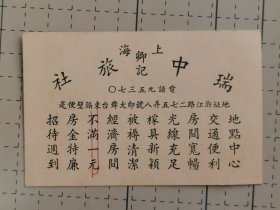 上海
卿記
瑞中旅社
電話九五三七〇
地址浙江路二七五弄八號即大舞台東隔壁便是
地點中心
交通便利
房間寬暢
光線充足
傢具新穎
被褥清潔
經濟房間
不滿一元
房金特廉
招待週到